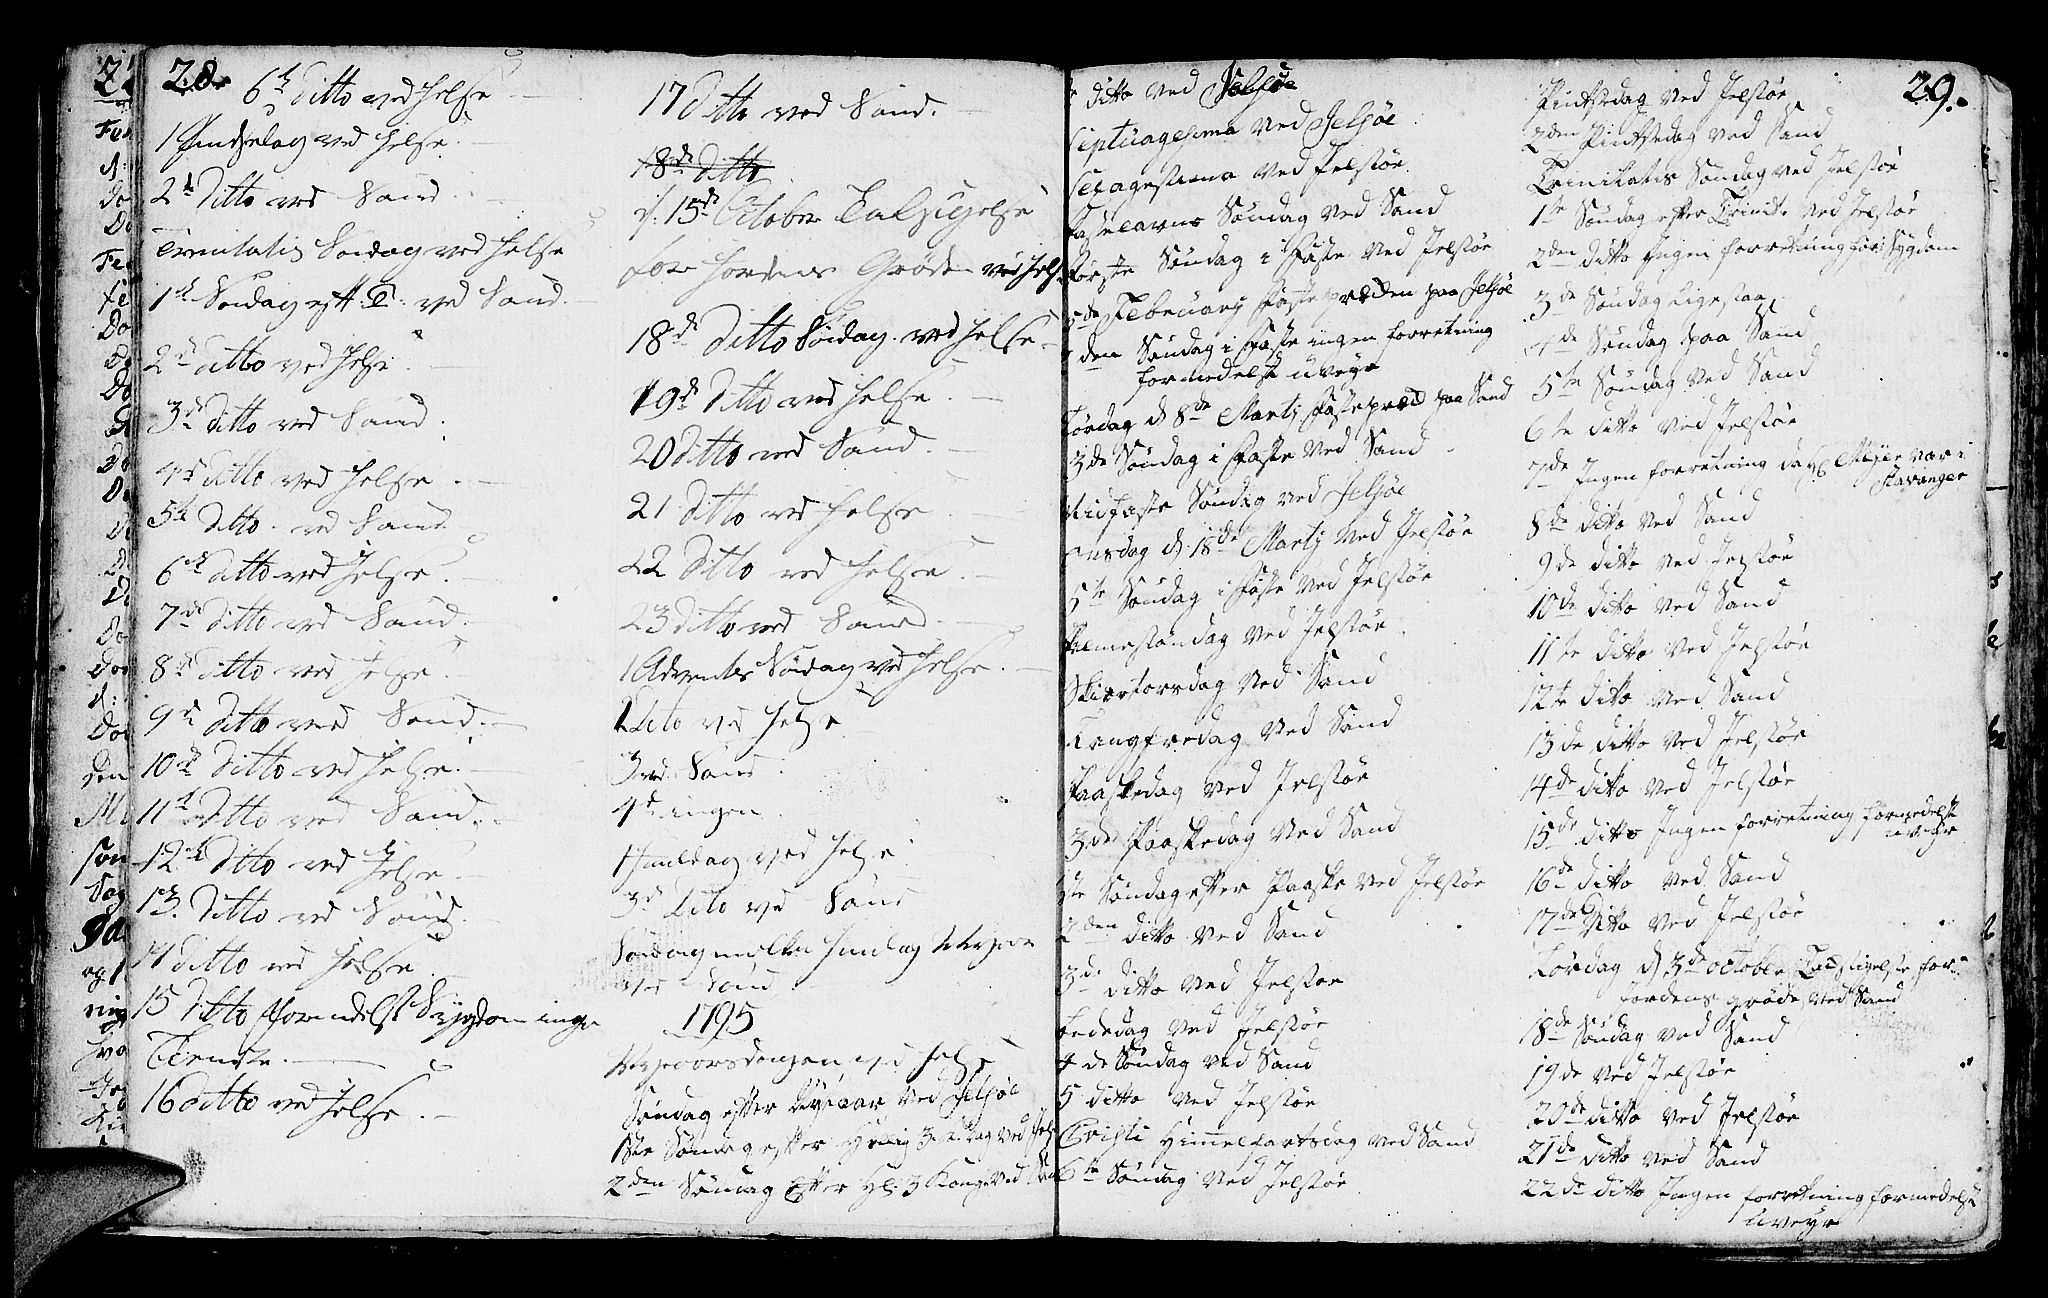 28.
6te ditto ved Helse
1 Pindsedag ved Helse
2d Ditto ved Sand
Trinitatis Søndag ved Helse
1te Søndag eft. T. ved Sand.
2de ditto ved Helse
3de Ditto ved Sand.
4de ditto ved Helse
5te ditto ved Sand
6te ditto ved Helse
7de ditto ved Sand.
8de ditto ved Helse
9de Ditto ved Sand.
10de Ditto ved Helse.
11te Ditto ved Sand.
12te ditto ved Helse
13. Ditto ved Sand
14 ditto ved Helse
15 Ditto formedelst Sygdom ingen
Tieneste.
16 ditto ved Helse.
17 Ditto ved Sand.
18de ditto
d: 15de October Taksigelse
for Jordens Grøde ved Hels
18de Ditto Søndag ved Helse
19de Ditto ved Helse.
20 Ditto ved Sand.
21 Ditto ved Helse
22 Ditto ved Helse.
23 Ditto ved Sand.
1 Advents Søndag ved Helse.
2 Dito ved Helse
3 ved Sand
4de ingen
1 Juuldag ved Helse
3de Dito ved Sand
Søndag mellem Juul og Nyeaar
ved Sand
1795
Nyeaarsdagen ved Helse
Søndag efter Nyeaar ved Jelsøe
1ste Søndag efter Hellig 3 K. Dag ved Jels
2den Søndag Efter Hl: 3 Konge ved San
29.
ditto ved Jelsøe
Septuagesima ved Jelsøe
Sexagesima ved Jelsøe
Fastelavns Søndag ved Sand
Første Søndag i Faste ved Jelsøe
5de February Fasteprædken paa Jelsøe
den Søndag i Faste ingen forretning
formedelst uveyr
Lørdag d 8de Martj Fastepræd paa Sand
3de Søndag i Faste ved Sand
Midfaste Søndag ved Jelsøe
Onsdag d 18de Martj ved Jelsøe
5te Søndag i Faste ved Jelsøe
Palmesøndag ved Jelsøe.
Skiertorsdag ved Sand
Langfredag ved Sand
Paaskedag ved Jelsøe
3de Paaskedag ved Sand
1ste Søndag efter Paaske ved Jelsøe
2den ditto ved Sand
3di Ditto ved Jelsøe
Bededag ved Jelsøe
4de Søndag ved Sand
5 ditto ved Jelsøe
Christi Himmelfartsdag ved Sand
6te Søndag ved Jelsøe
Pintsedag ved Jelsøe
2den Pintsedag ved Sand
Trinitatis Søndag ved Jelsøe
1te Søndag efter Trinit. ved Jelsøe
2den ditto Ingen forretning for Sygdom
3de Søndag Ligesaa
4de Søndag paa Sand
5te Søndag ved Sand
6te ditto ved Jelsøe
7de Ingen forretning da Meyer var i
Stavanger
8de ditto ved Sand
9de ditto ved Jelsøe
10de ditto ved Sand
11te ditto ved Jelsøe
12te ditto ved Sand
13de ditto ved Jelsøe
14de ditto ved Jelsøe
15de ditto Ingen forretning formedelst
uveyr
16de ditto ved Sand
17de Ditto ved Jelsøe
Lørdag d 3de october Taksigelse for
Jordens grøde ved Sand
18de Søndag ved Sand
19de ved Jelsøe
20de ditto ved Jelsøe
21de ditto ved Sand
22de ditto Ingen forretning formedelst
uveyr